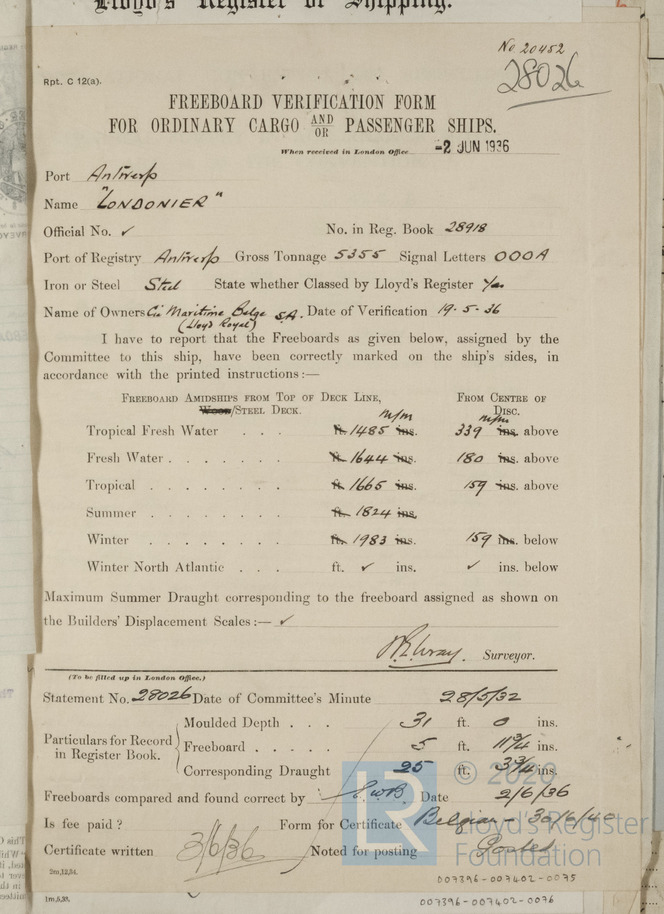 Lloyd's Register of Shipping.
No 20452
28026
Rpt. C 12(a).
FREEBOARD VERIFICATION FORM
FOR ORDINARY CARGO AND/OR PASSENGER SHIPS.
When received in London Office -2 JUN 1936
Port Antwerp
Name "LONDONIER"
Official No. ✓ No. in Reg. Book 28918
Port of Registry Antwerp Gross Tonnage 5355 Signal Letters OOOA
Iron or Steel Steel State whether Classed by Lloyd's Register Yes
Name of Owners Cie Maritime Belge S.A. Date of Verification 19-5-36
(Lloyd Royal)
I have to report that the Freeboards as given below, assigned by the
Committee to this ship, have been correctly marked on the ship's sides, in
accordance with the printed instructions:—
FREEBOARD AMIDSHIPS FROM TOP OF DECK LINE, FROM CENTRE OF
WOOD/STEEL DECK. DISC.
m/m m/m
Tropical Fresh Water . . . ft. 1485 ins. 339 ins. above
Fresh Water . . . . . . . ft. 1644 ins. 180 ins. above
Tropical . . . . . . . ft. 1665 ins. 159 ins. above
Summer . . . . . . . ft. 1824 ins.
Winter . . . . . . . ft. 1983 ins. 159 ins. below
Winter North Atlantic . . . ft. ✓ ins. ✓ ins. below
Maximum Summer Draught corresponding to the freeboard assigned as shown on
the Builders' Displacement Scales:— ✓
Surveyor.
(To be filled up in London Office.)
Statement No. 28026 Date of Committee's Minute 28/5/32
Particulars for Record in Register Book.
Moulded Depth . . . 31 ft. 0 ins.
Freeboard . . . . . 5 ft. 11 3/4 ins.
Corresponding Draught 25 ft. 3 3/4 ins.
Freeboards compared and found correct by Date 2/6/36
Is fee paid ? Form for Certificate Belgian - 30/6/40
Certificate written 3/6/36 Noted for posting Posted
2m,12,34.
© 2020
LR Lloyd's Register
Foundation
007396-007402-0075
1m,5,35.
007396-007402-0076